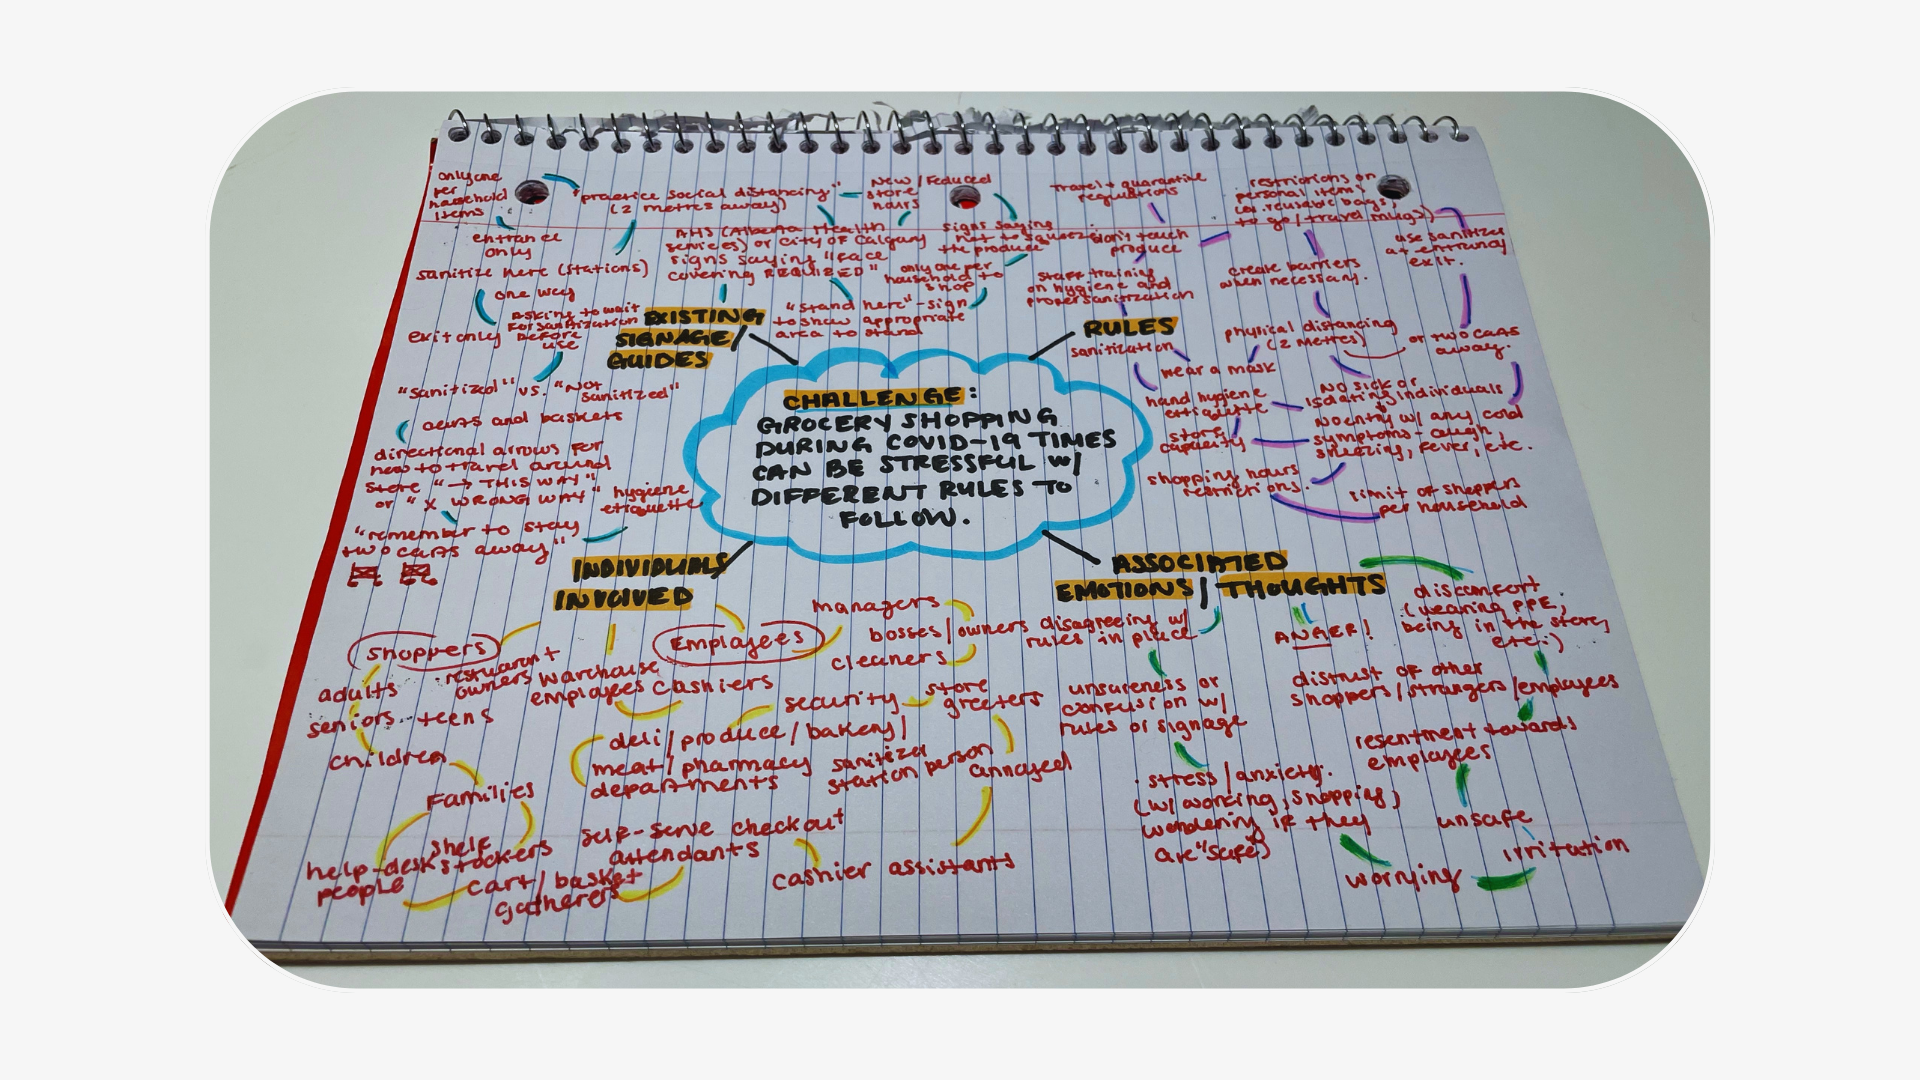 only one
per
household
items
"practice social distancing"
(2 metres away)
New/reduced
store
hours
entrance
only
sanitize here (stations)
one way
exit only
asking to wait
for sanitization
before
use
AHS (Alberta Health
services) or City of Calgary
signs saying "face
covering REQUIRED"
signs saying
not to squeeze
the produce
only one per
household to
shop
"stand here" - sign
to show appropriate
area to stand
EXISTING
SIGNAGE/
GUIDES
"sanitized" vs. "Not
sanitized"
carts and baskets
directional arrows for
how to travel around
store "→ THIS WAY"
or "X WRONG WAY"
hygiene
etiquette
"remember to stay
two carts away"
travel + quarantine
regulations
restrictions on
personal items
(ex. reusable bags,
to go/travel mugs)
don't touch
produce
use sanitizer
at entrance/
exit.
staff training
on hygiene and
proper sanitization
create barriers
when necessary.
RULES
sanitization
physical distancing
(2 metres)
or two carts
away.
wear a mask
hand hygiene
etiquette
No sick or
isolating individuals
No entry w/ any cold
symptoms - cough,
sneezing, fever, etc.
store
capacity
shopping hours
restrictions.
limit of shoppers
per household
CHALLENGE:
GROCERY SHOPPING
DURING COVID-19 TIMES
CAN BE STRESSFUL W/
DIFFERENT RULES TO
FOLLOW.
INDIVIDUALS
INVOLVED
Shoppers
adults
seniors
teens
children
restaurant
owners
Families
warehouse
employees
Employees
managers
bosses/owners
cleaners
cashiers
security
store
greeters
deli/produce/bakery/
meat/pharmacy
departments
sanitizer
station person
help-desk
people
shelf
stockers
self-serve checkout
attendants
cart/basket
gatherers
cashier assistants
ASSOCIATED
EMOTIONS/THOUGHTS
disagreeing w/
rules in place
ANGER!
discomfort
(wearing PPE,
being in the store,
etc.)
unsureness or
confusion w/
rules or signage
distrust of other
shoppers/strangers/employees
annoyed
resentment towards
employees
stress/anxiety.
(w/ working, shopping,
wondering if they
are "safe")
unsafe
irritation
worrying